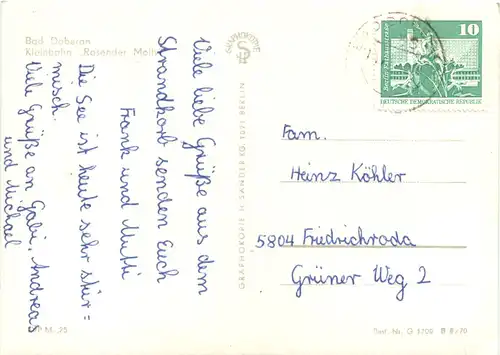 Bad Doberan
Kleinbahn „Rasender Molli"
Viele liebe Grüße aus dem
Strandkorb senden Euch
Frank und Mutti
Die See ist heute sehr stür=
misch.
Viele Grüße an Gabi, Andreas
und Michael
GRAPHOKOPIE H. SANDER KG, 1071 BERLIN
GRAPHOKOPIE
10
Berlin, Rathausstrasse
DEUTSCHE DEMOKRATISCHE REPUBLIK
Fam.
Heinz Köhler
5804 Friedrichroda
Grüner Weg 2
M -,25
Best.-Nr. G 1200 B 8/70